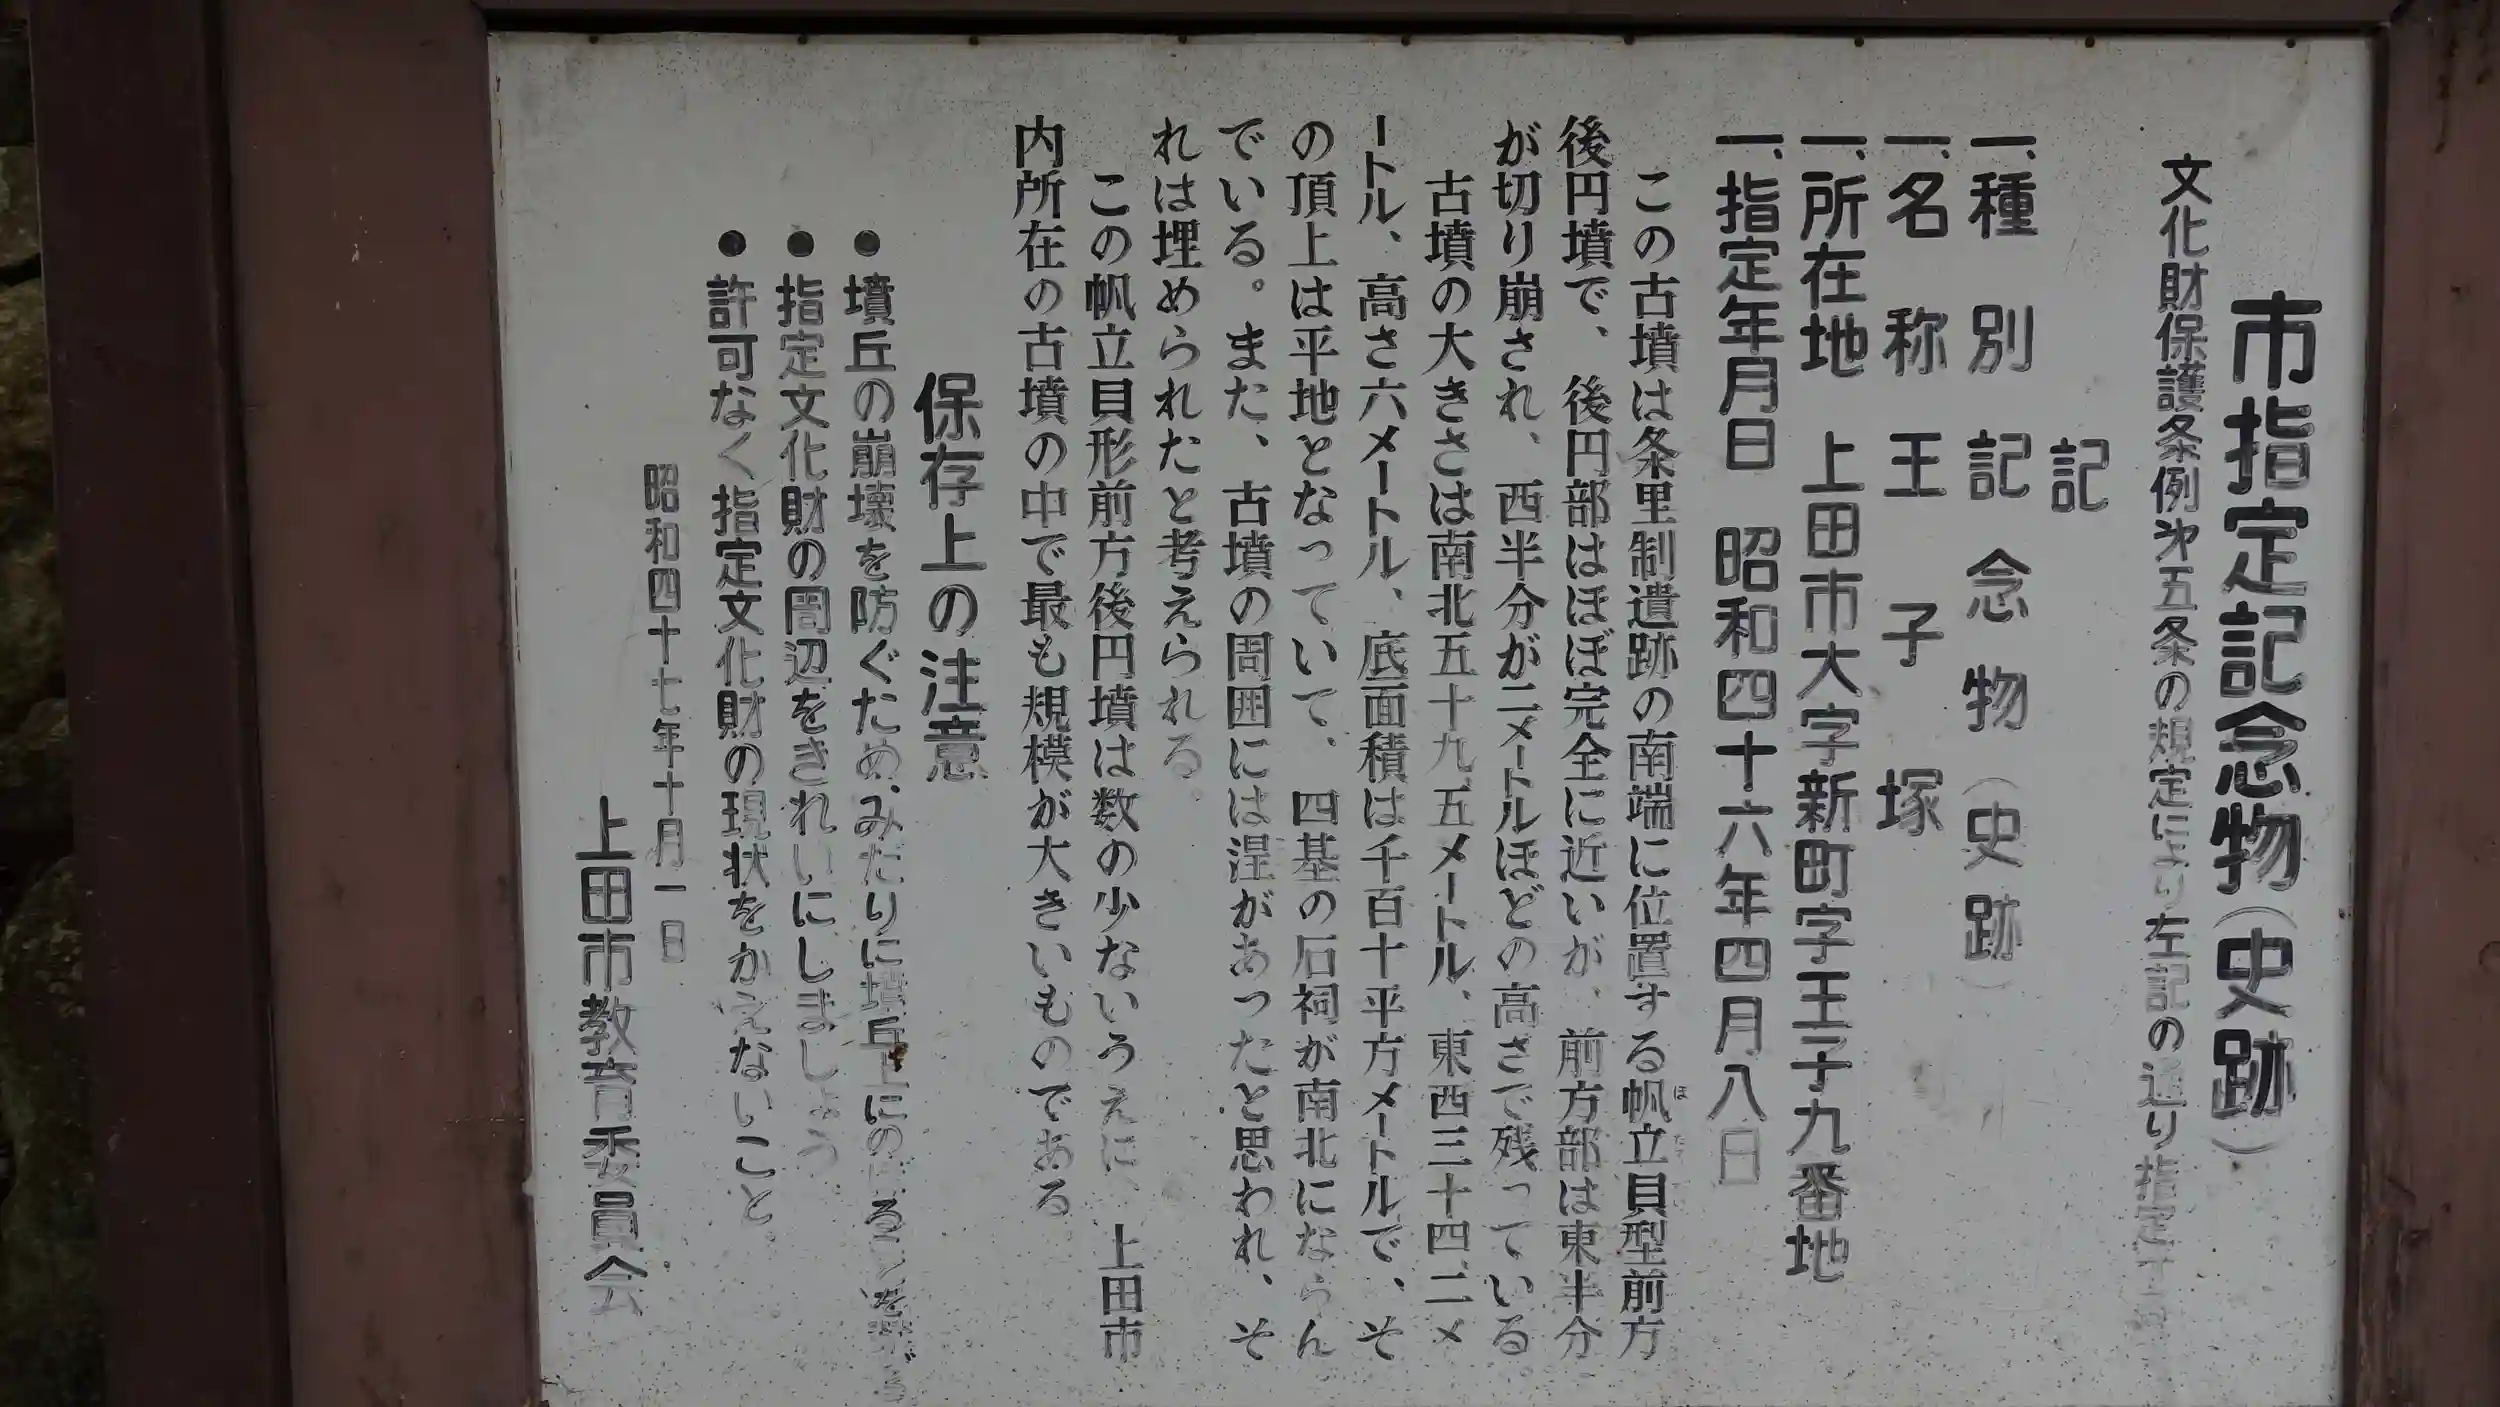 市指定記念物(史跡)
文化財保護条例第五条の規定により左記の通り指定する
記
一、種別 記念物(史跡)
一、名称 王子塚
一、所在地 上田市大字新町字王子九番地
一、指定年月日 昭和四十六年四月八日
この古墳は条里制遺跡の南端に位置する帆立貝型前方
後円墳で、後円部はほぼ完全に近いが、前方部は東半分
が切り崩され、西半分が二メートルほどの高さで残っている
古墳の大きさは南北五十九.五メートル、東西三十四.二メ
ートル、高さ六メートル、底面積は千百十平方メートルで、そ
の頂上は平地となっていて、四基の石祠が南北にならん
でいる。また、古墳の周囲には湟があったと思われ、そ
れは埋められたと考えられる。
この帆立貝形前方後円墳は数の少ないうえに、上田市
内所在の古墳の中で最も規模が大きいものである
保存上の注意
●墳丘の崩壊を防ぐため、みだりに墳丘上にのぼることを禁ずる
●指定文化財の周辺をきれいにしましょう
●許可なく指定文化財の現状をかえないこと。
昭和四十七年十月一日
上田市教育委員会